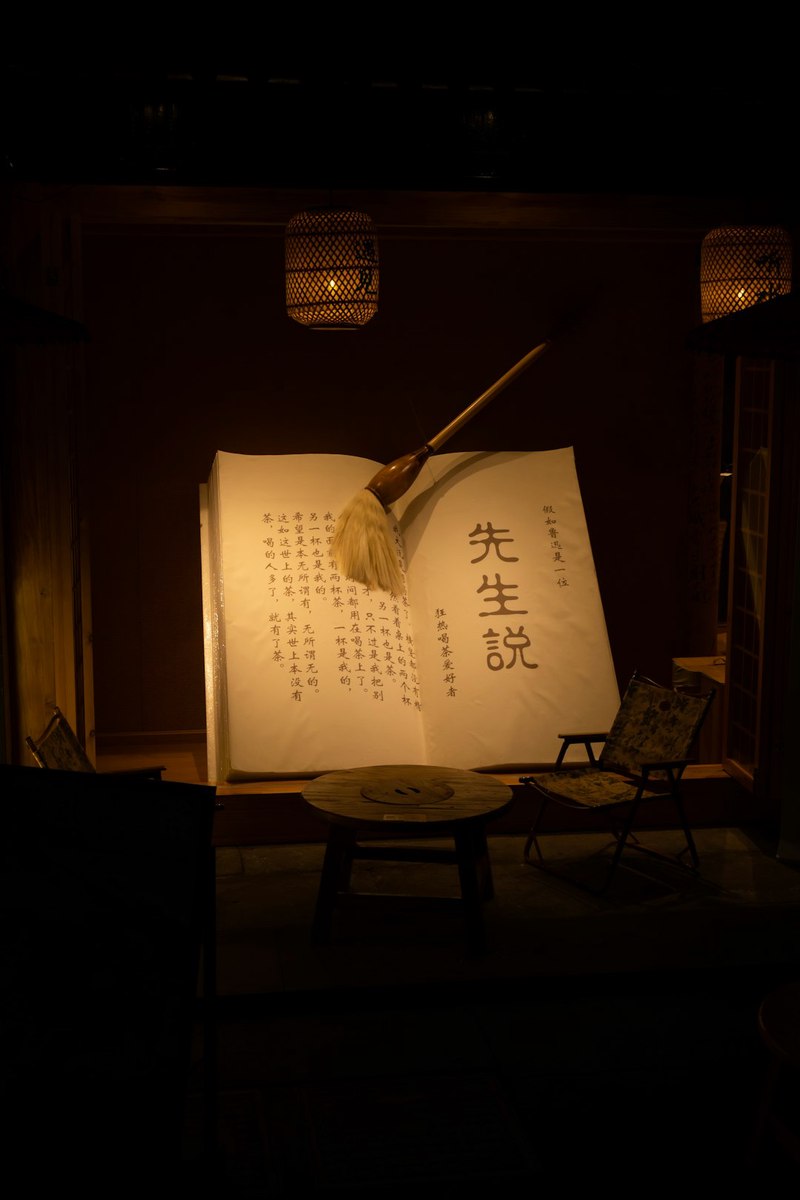 假如鲁迅是一位
先生説
狂热喝茶爱好者
茶了，横竖都没有
然看着桌上的两个杯
另一杯也是茶。
才，只不过是我把别
间都用在喝茶上了。
我的面前有两杯茶，一杯是我的，
另一杯也是我的。
希望是本无所谓有，无所谓无的。
这如这世上的茶，其实世上本没有
茶，喝的人多了，就有了茶。
遇见